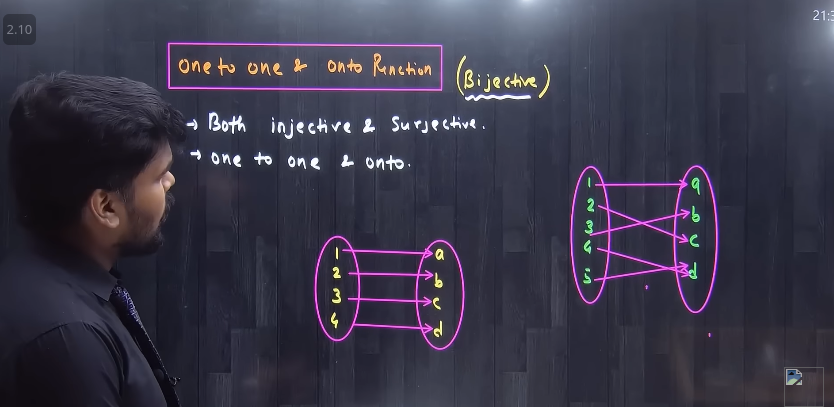 2.10
21:3
one to one & onto Function (Bijective)
→ Both injective & Surjective.
→ one to one & onto.
1 a
2 b
3 c
4 d
1 a
2 b
3 c
4 d
5